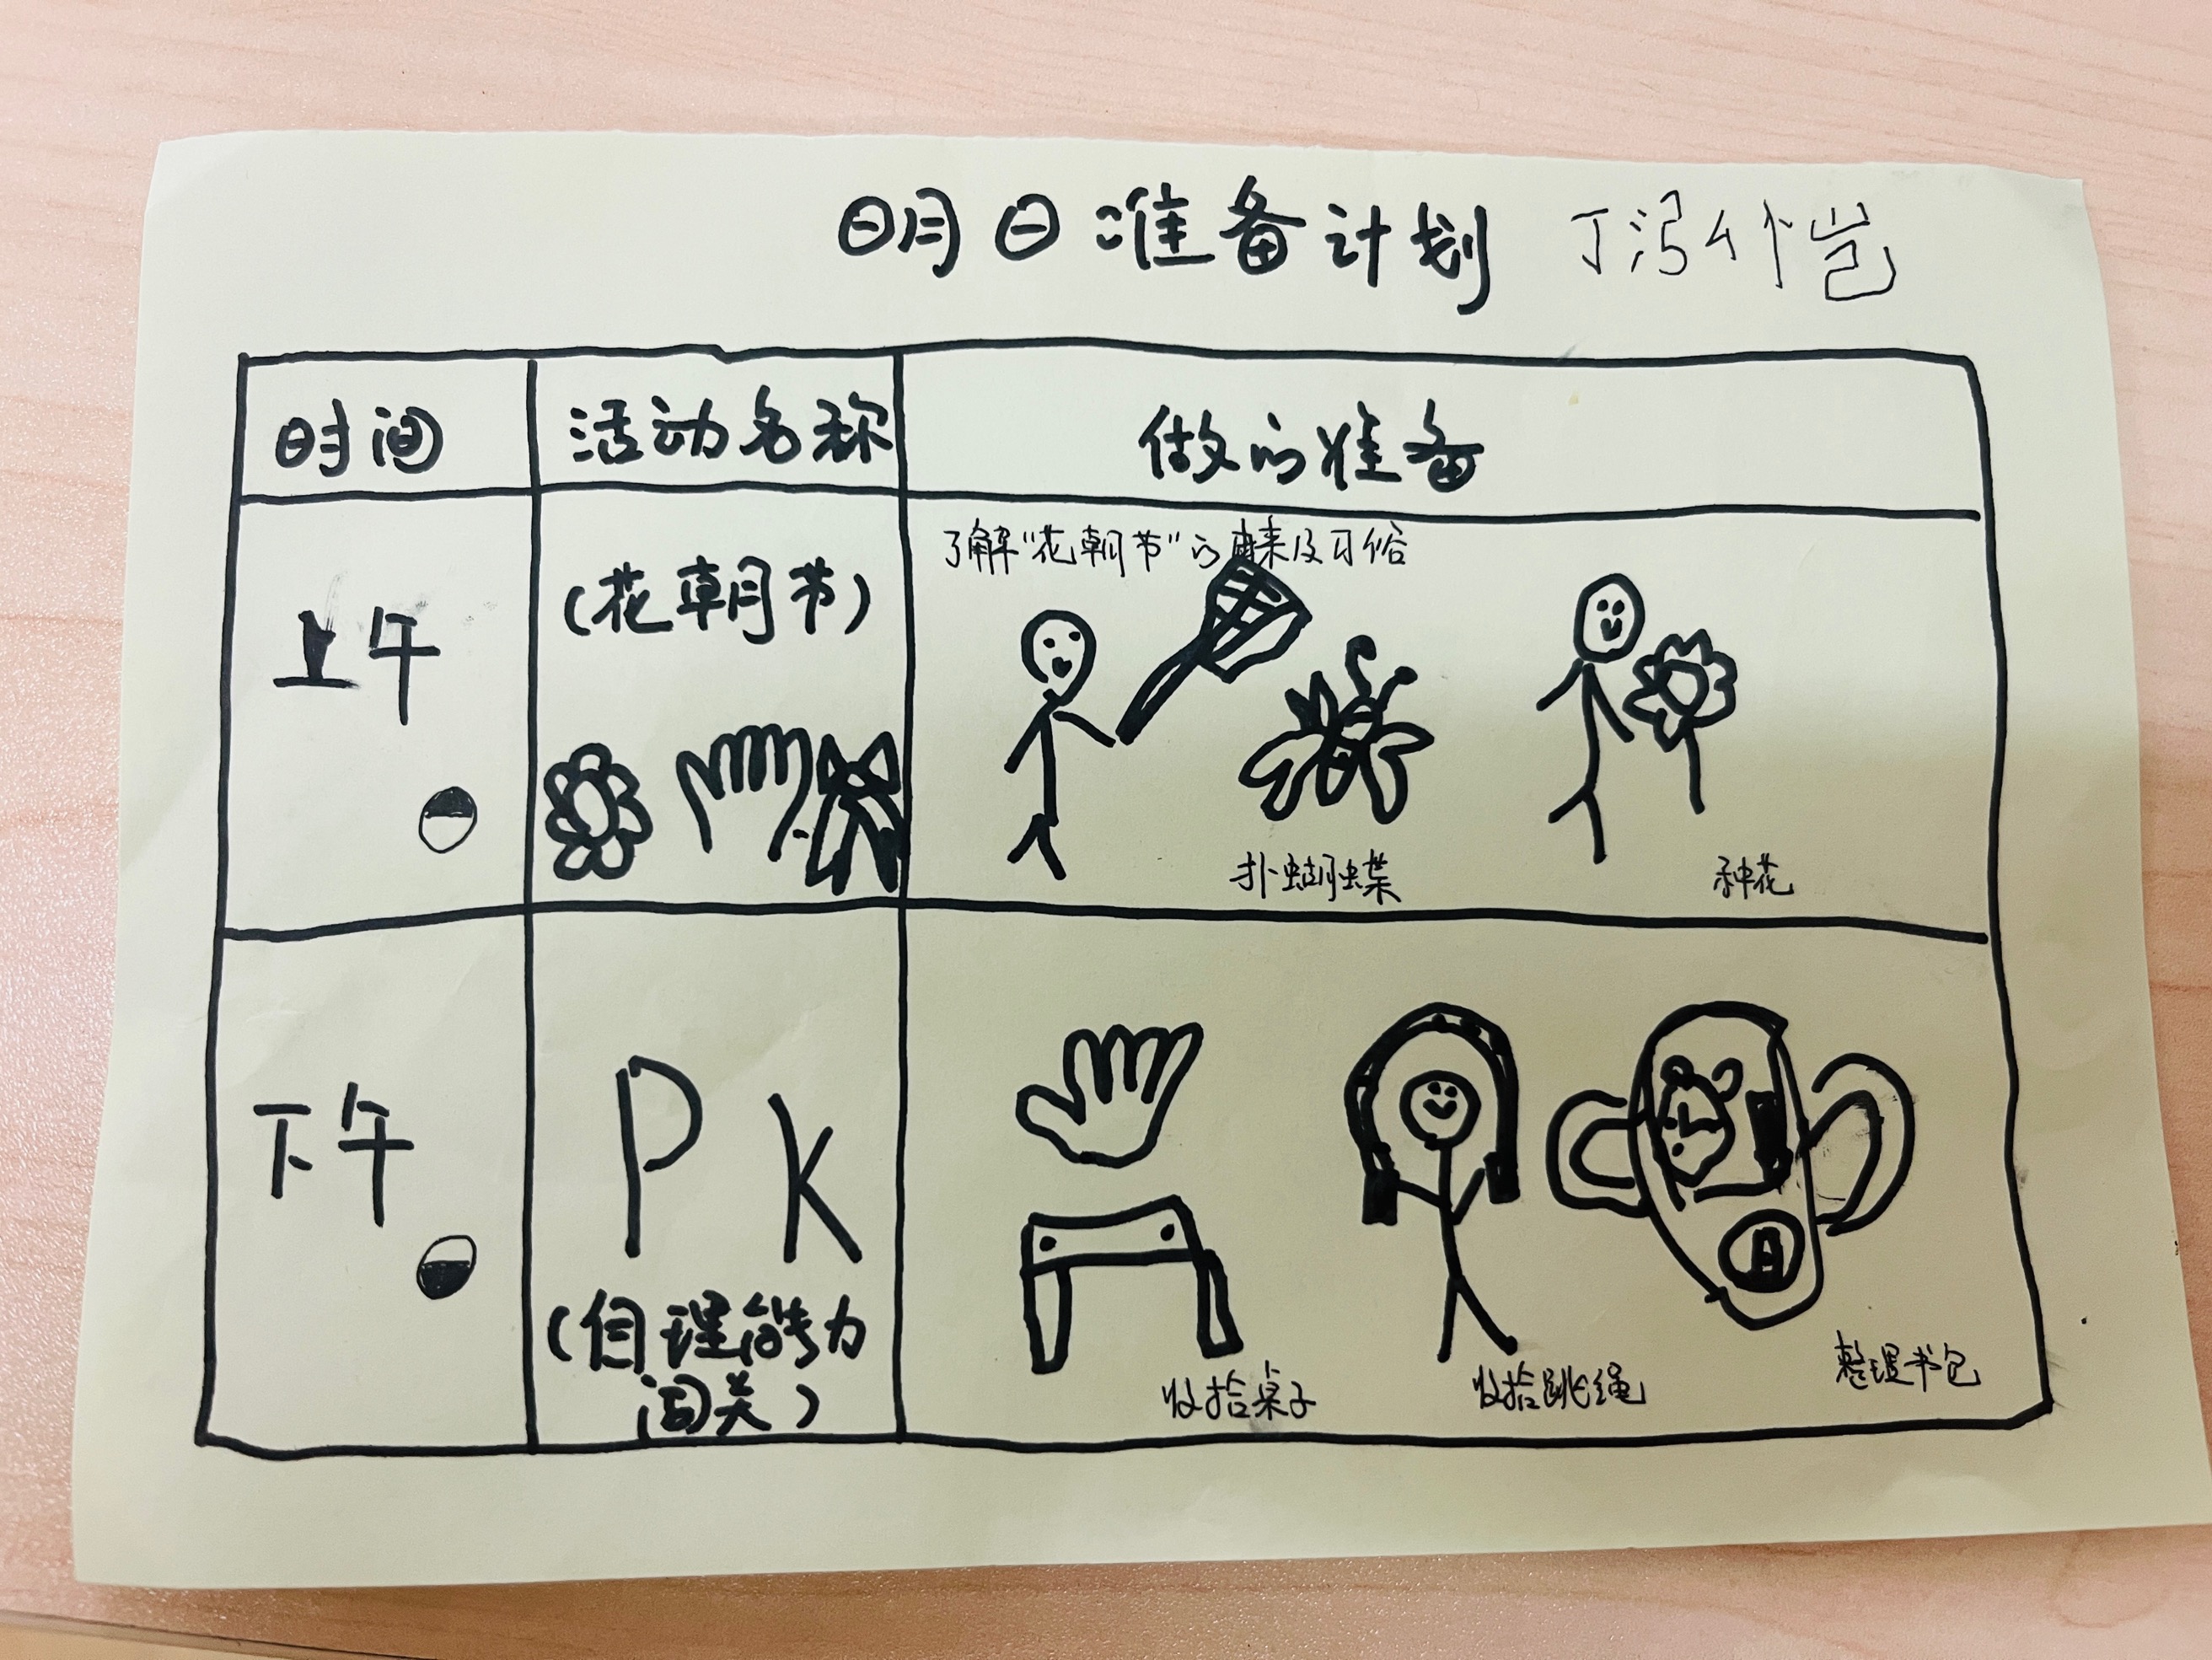 明日准备计划
时间 活动名称 做的准备
上午
(花朝节)
了解“花朝节”的由来及习俗
扑蝴蝶 种花
下午
PK
(自理能力
闯关)
收拾桌子 收拾跳绳 整理书包